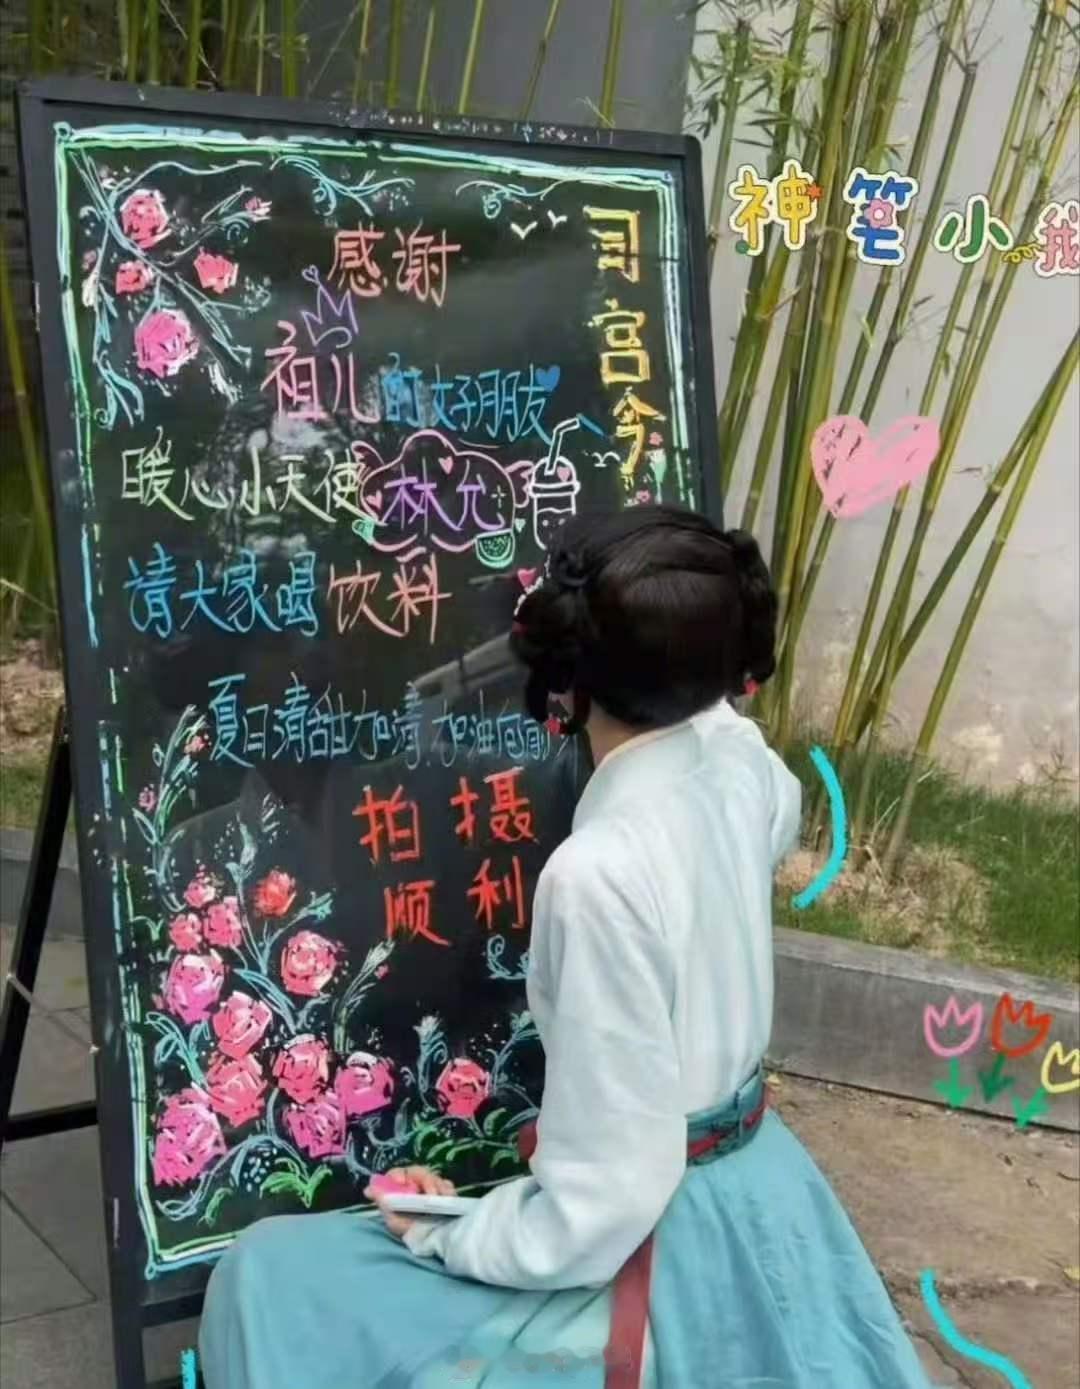 神笔小我
司宫令
感谢
祖儿的好朋友
暖心小天使林允
请大家喝饮料
夏日清甜加清.加油向前
拍摄
顺利